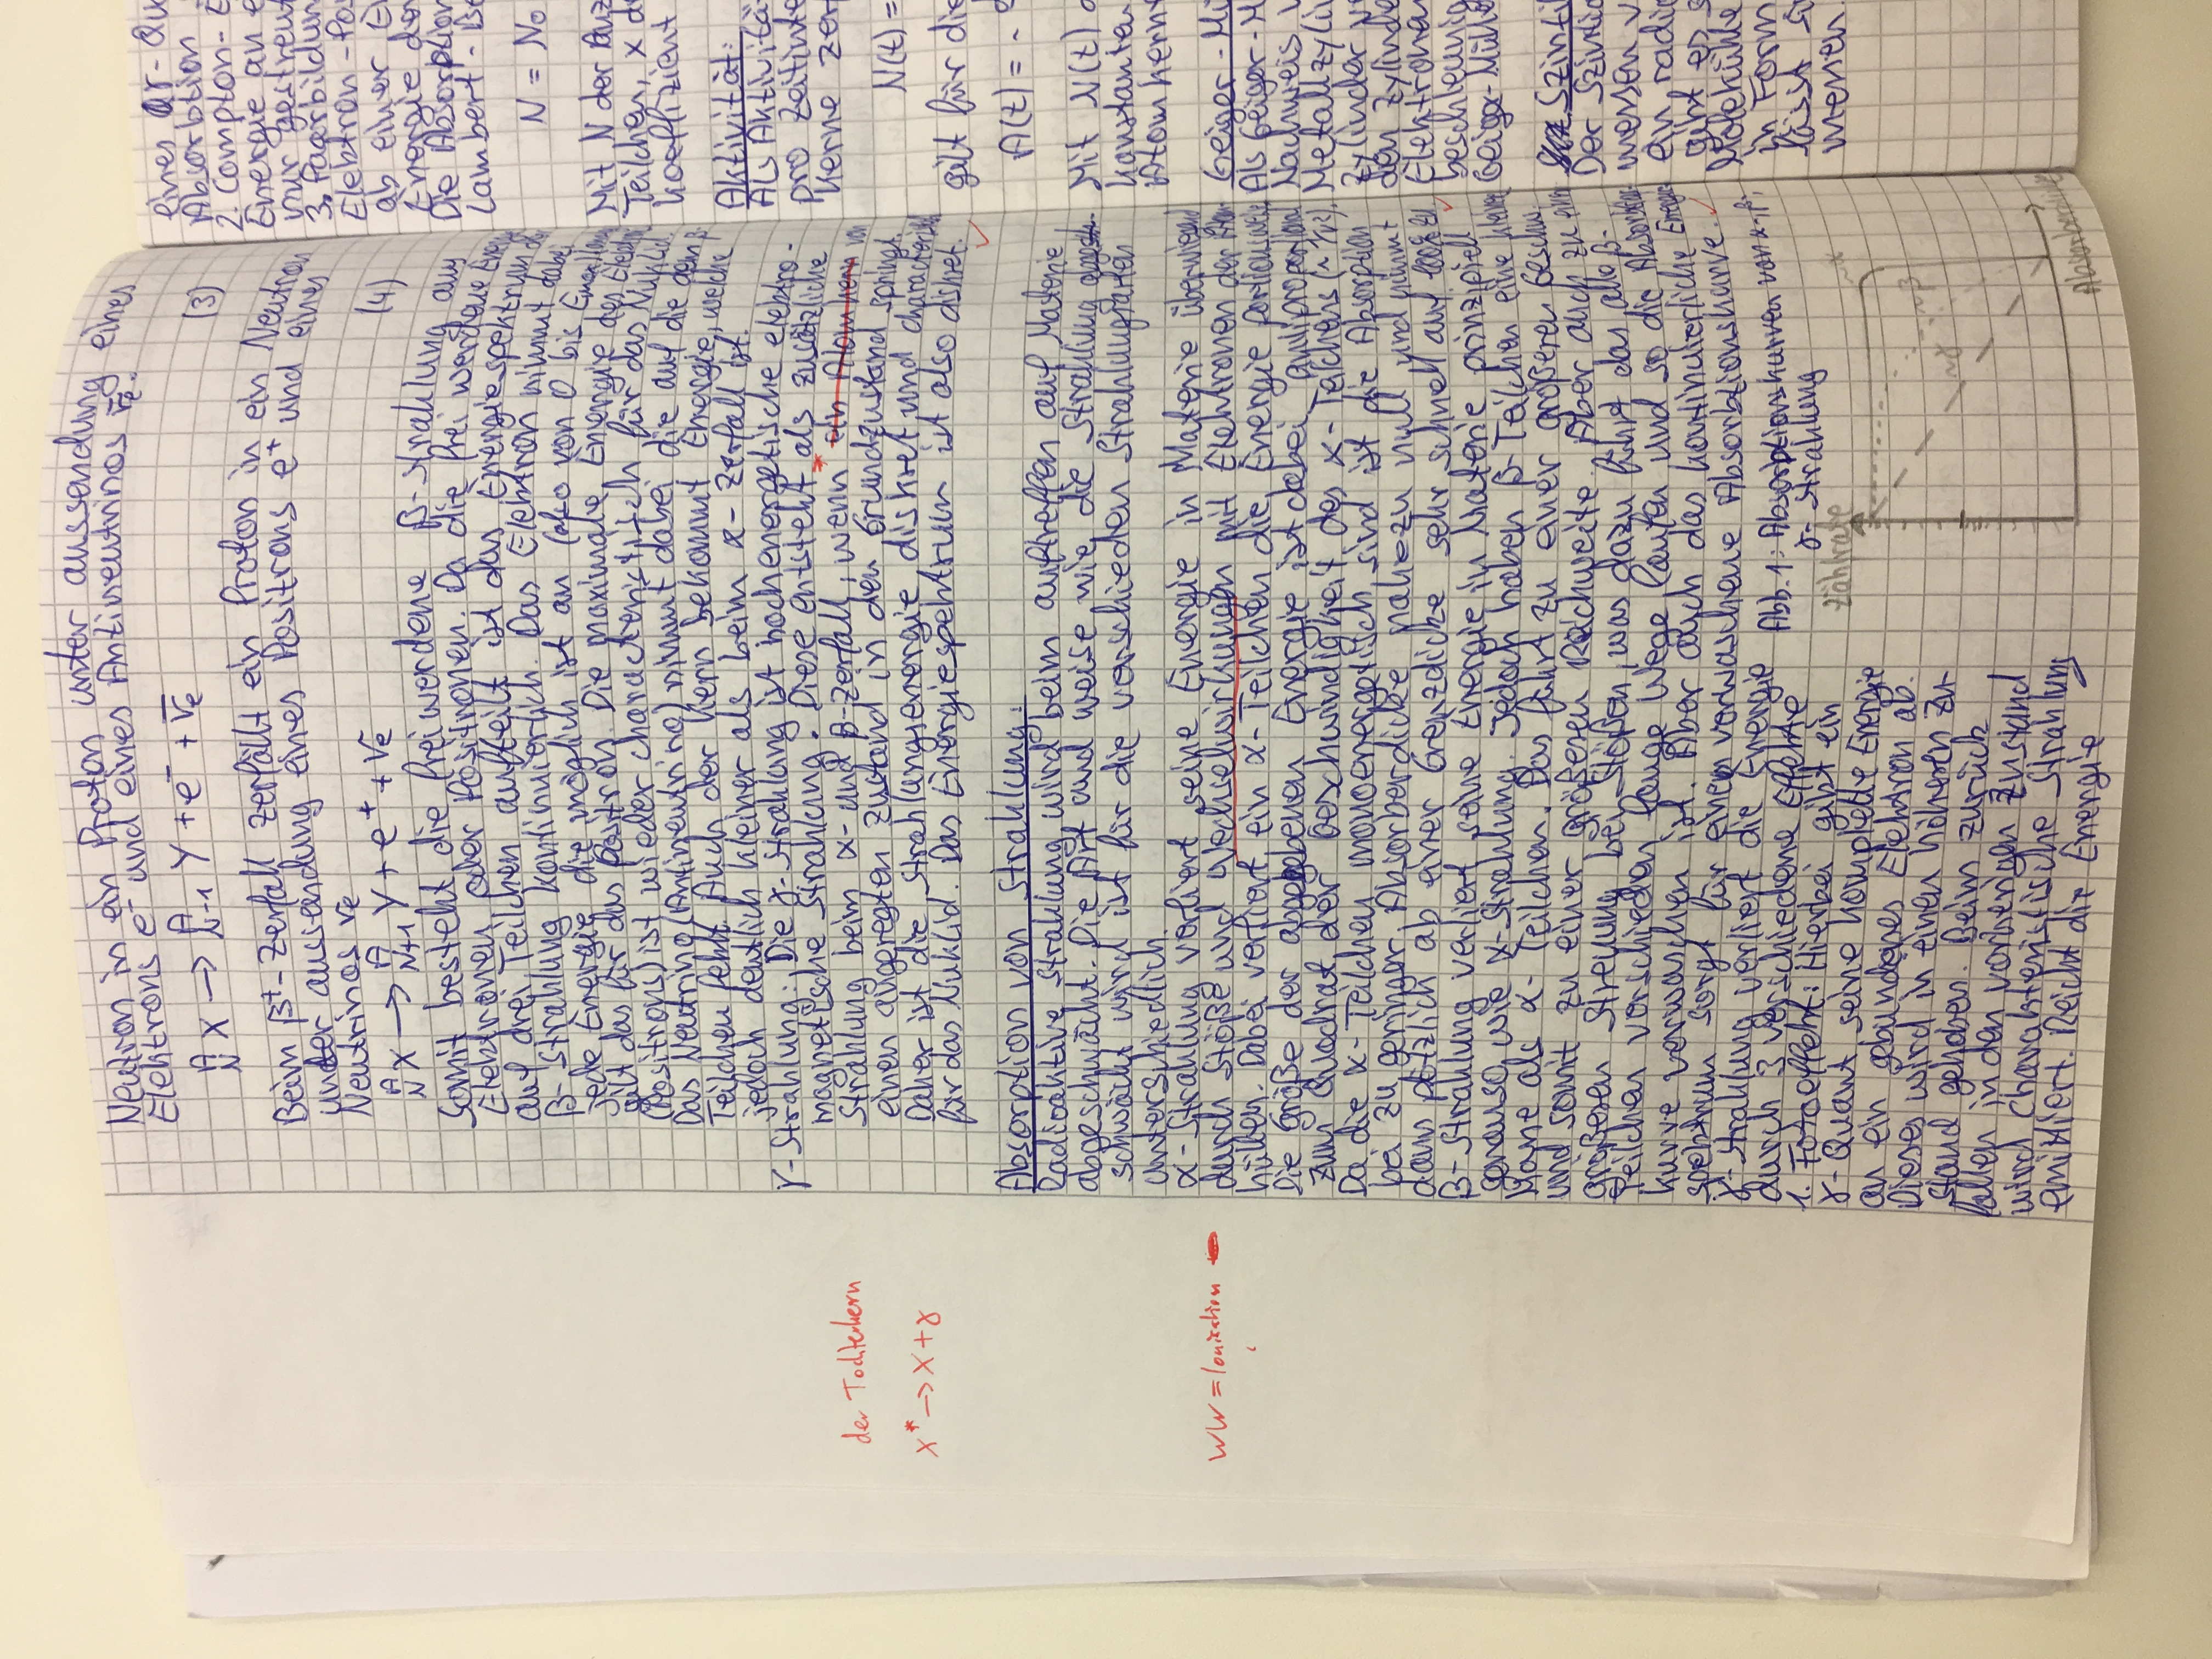 Neutron in ein Proton unter aussendung eines
Elektrons e⁻ und eines Antineutrinos ν̅e.
A/N X → A/N-1 Y + e⁻ + ν̅e (3)
Beim β⁺-Zerfall zerfällt ein Proton in ein Neutron
unter aussendung eines Positrons e⁺ und eines
Neutrinos νe
A/N X → A/N+1 Y + e⁺ + νe (4)
Somit besteht die freiwerdene β-Strahlung aus
Elektronen oder Positronen. Da die frei werdene Energie
auf drei Teilchen aufteilt ist das Energiespektrum der
β-Strahlung kontinuierlich. Das Elektron nimmt dabei
jede Energie die möglich ist an (also von 0 bis Emax)
gilt das für das Positron. Die maximale Energie des
(Positrons) ist wieder characteristisch für das Nuklid.
Das Neutrino (Antineutrino) nimmt dabei die auf die dem β-
Teilchen fehlt. Auch der Kern bekommt Energie, welche
jedoch deutlich kleiner als beim α-Zerfall ist.
γ-Strahlung: Die γ-Strahlung ist hochenergetische elektro-
magnetische Strahlung. Diese entsteht als zusätzliche
Strahlung beim α- und β-Zerfall, wenn * ein Atomkern von
der Tochterkern
einen angeregten Zustand in den Grundzustand springt.
Daher ist die Strahlungsenergie diskret und characteristisch
X* → X + γ
für das Nuklid. Das Energiespektrum ist also diskret.
Absorption von Strahlung:
Radioaktive Strahlung wird beim auftreffen auf Materie
abgeschwächt. Die Art und weise wie die Strahlung
schwächt wird ist für die verschieden Strahlungsarten
unterschiedlich.
α-Strahlung verliert seine Energie in Materie überwiegend
WW = Ionisation
durch Stöße und Wechselwirkungen mit Elektronen der Atom-
hüllen. Dabei verliert ein α-Teilchen die Energie portionsweise
Die Größe der abgegebenen Energie ist dabei antiproportional
zum Quadrat der Geschwindigkeit des α-Teilchens (~ 1/v²).
Da die α-Teilchen monoenergetisch sind ist die Absorption
bei zu geringer Absorberdicke nahezu null und nimmt
dann plötzlich ab einer Grenzdicke sehr schnell auf 100% zu
β-Strahlung verliert seine Energie in Materie prinzipiell
genauso wie α-Strahlung. Jedoch haben β-Teilchen eine kleinere
Masse als α-Teilchen. Das führt zu einer größeren Geschw.
und somit zu einer größeren Reichweite. Aber auch zu einer
größeren Streuung bei Stößen, was dazu führt das alle β-
Teilchen verschieden lange Wege laufen und so die Absorbtions-
kurve verwaschen ist. Aber auch das kontinuierliche Energie-
spektrum sorgt für einen verwaschene Absorbtionskurve.
γ-Strahlung verliert die Energie
durch 3 verschiedene Effekte
1. Fotoeffekt: Hierbei gibt ein
γ-Quant seine komplette Energie
an ein gebundenes Elektron ab.
Dieses wird in einen höheren Zu-
stand gehoben. Beim zurück
fallen in den vorherigen Zustand
wird charakteristische Strahlung
emittiert. Reicht die Energie
Abb. 1: Absorbtionskurven von α-, β-,
γ-Strahlung
Zählrate
~α
~β
~γ
eines
Absorbtion
2. Compton-
Energie an
nur gestreut
3. Paarbildun
Elektron-Pos
ab einer
Energie der
Die Absorption
Lambert-Be
N = N₀
Mit N der Anz
Teilchen, x d
koeffizient
Aktivität:
Als Aktivitä
pro Zeitinte
Kerne zer
N(t) =
gilt für die
A(t) = -
Mit N(t)
konstanten
Atomkern
Geiger-Mü
Als Geiger-M
Nachweis v
Metallzylin
Zylinder
den Zylinde
Elektronen
beschleunig
Geiger-Mülle
Szintil
Der Szintil
messen v
ein radio
gibt es
Moleküle
in Form
lässt si
messen.